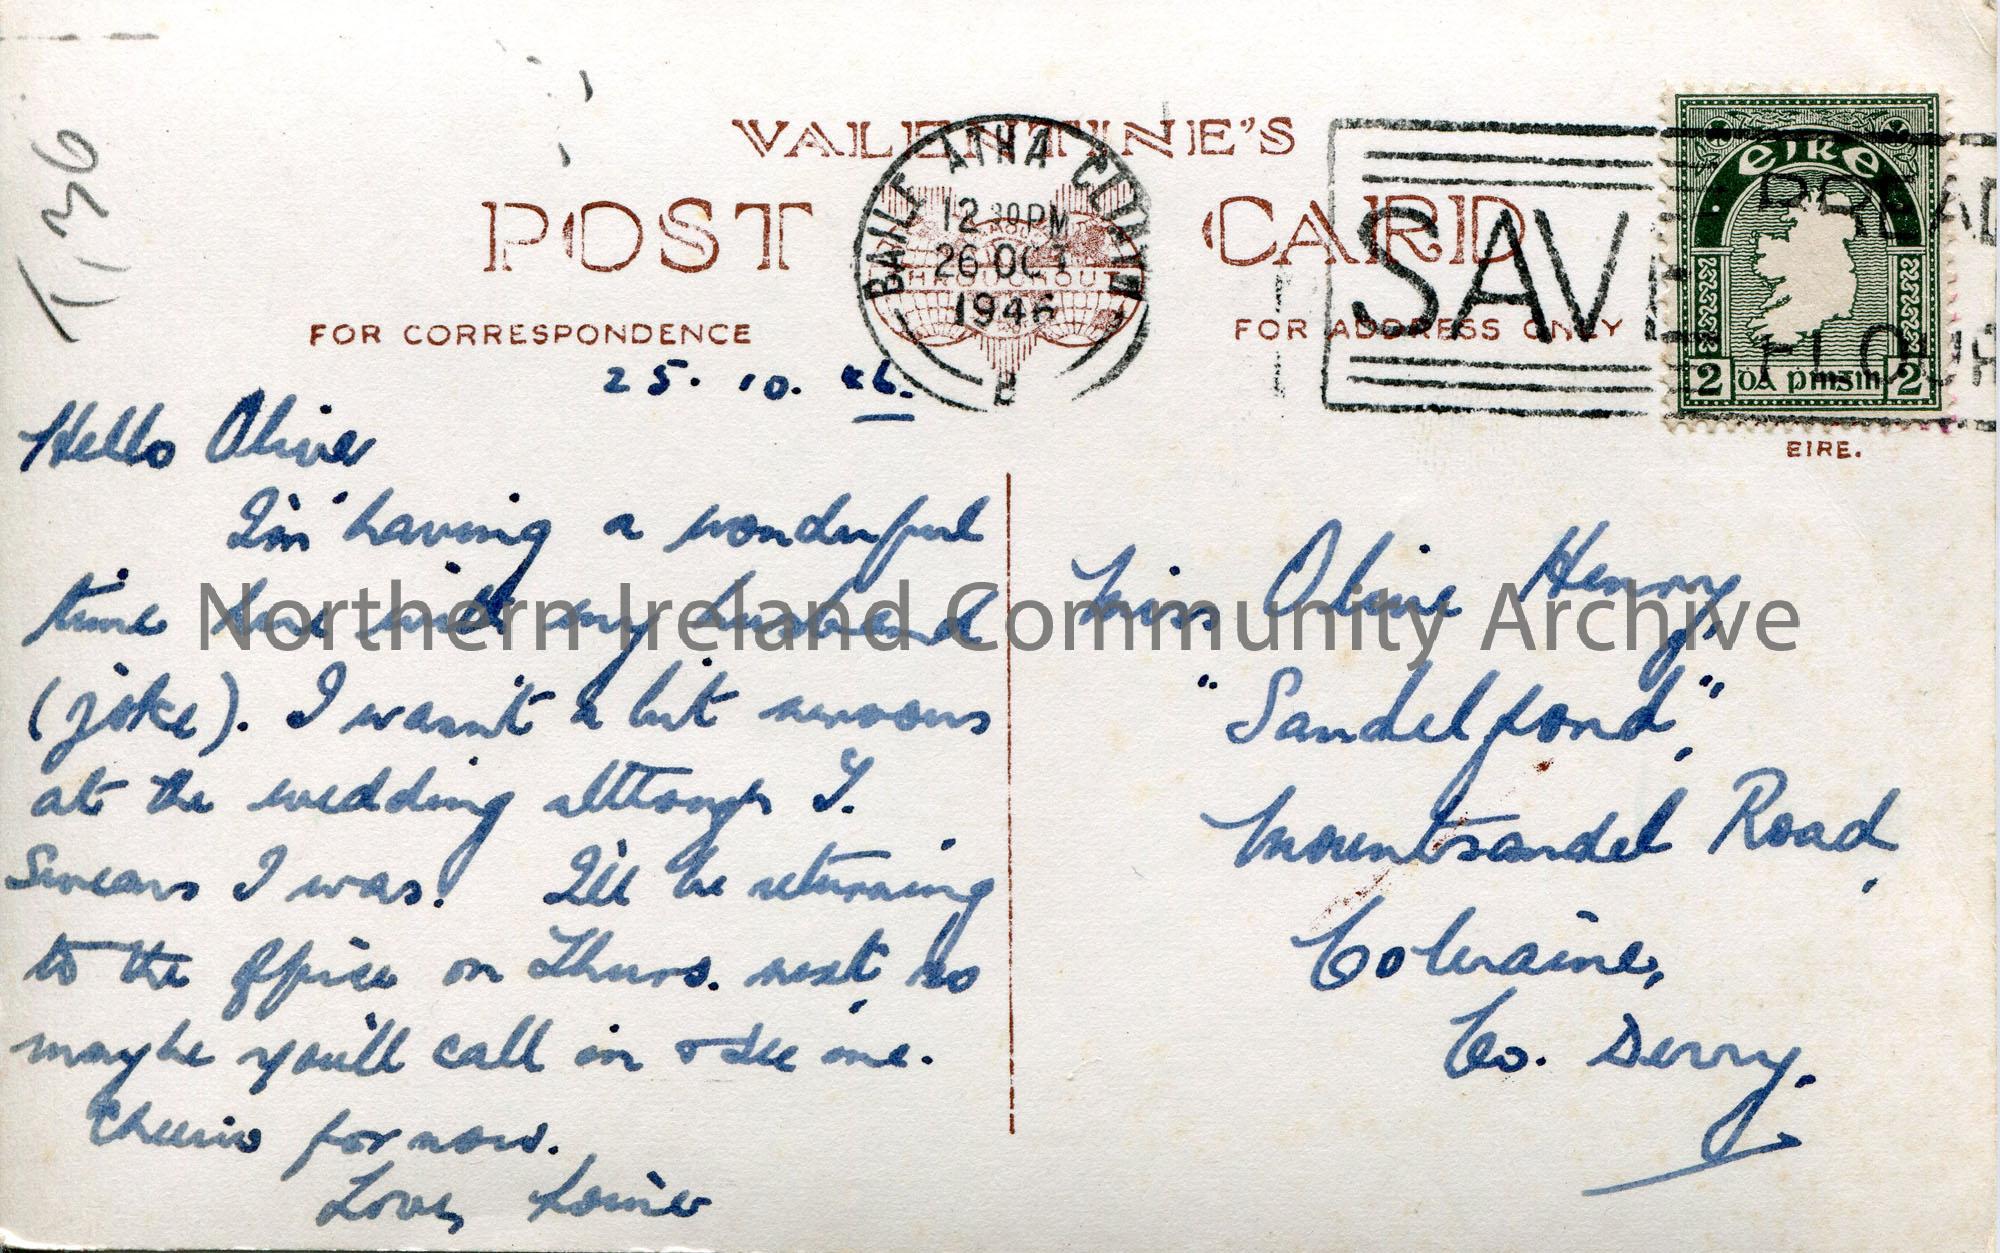 T.136
VALENTINE'S
POST CARD
BAILE ATHA CLIATH
12 30PM
26 OCT
1946
SAVE
BREAD
FLOUR
EIRE
2 DÁ PINGIN 2
FOR CORRESPONDENCE
FOR ADDRESS ONLY
EIRE.
25. 10. 46.
Hello Olive
I'm having a wonderful
time here with my husband
(joke). I wasn't a bit nervous
at the wedding although T.
Swears I was! I'll be returning
to the office on Thurs. next, so
maybe you'll call in & see me.
Cheerio for now.
Love,
Miss Olive Henry,
"Sandelford",
Mountsandel Road,
Coleraine,
Co. Derry.
Northern Ireland Community Archive